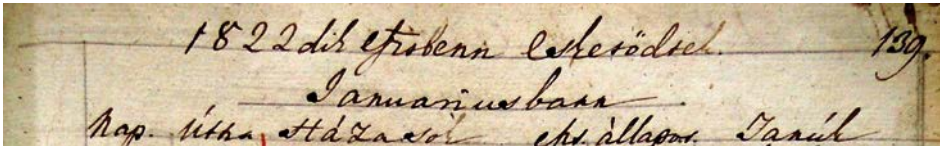 1822dik Esztbenn Eskesödtek. 139.
Januariusbann
Nap. Útza Házasok állapot. Tanúk